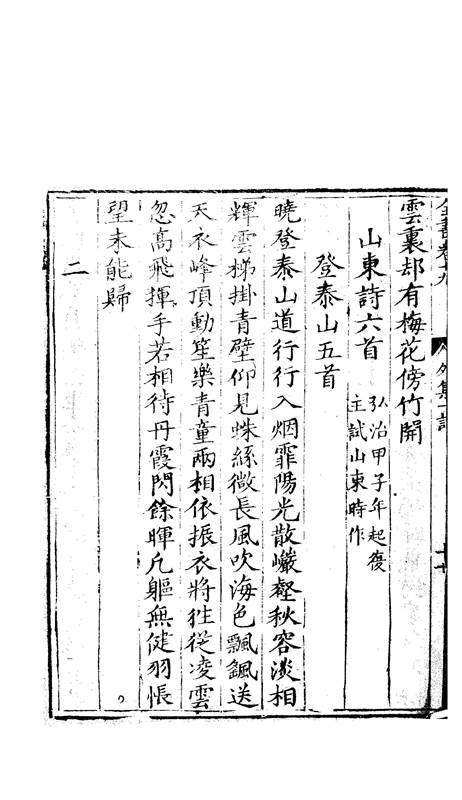 全書卷十九 外集一 詩
雲裏却有梅花傍竹開
山東詩六首 弘治甲子年起復
主試山東時作
登泰山五首
曉登泰山道行行入烟霏陽光散巗壑秋容淡相
輝雲梯掛青壁仰見蛛絲微長風吹海色飄颻送
天衣峰頂動笙樂青童兩相依振衣將徃從凌雲
忽高飛揮手若相待丹霞閃餘暉凢軀無健羽悵
望未能歸
二